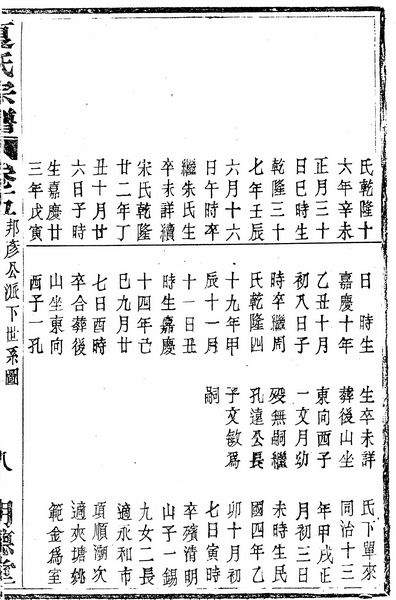 氏乾隆十
六年辛未
正月三十
日巳時生
乾隆三十
七年壬辰
六月十六
日午時卒
繼朱氏生
卒未詳續
宋氏乾隆
廿二年丁
丑十月廿
六日子時
生嘉慶廿
三年戊寅
日 時生
嘉慶十年
乙丑十月
初八日子
時卒繼周
氏乾隆四
十九年甲
辰十一月
十一日丑
時生嘉慶
十四年己
巳九月廿
七日酉時
卒合葬後
山坐東向
西子一孔
生卒未詳
葬後山坐
東向西子
一文月幼
殁無嗣繼
孔遠公長
子文敏爲
嗣
氏下單來
同治十三
年甲戌正
月初三日
未時生民
國四年乙
卯十月初
七日寅時
卒殯清明
山子一錫
九女二長
適永和市
項順潮次
適夾塘姚
範金爲室
氏宗譜
邦彥公派下世系圖
八